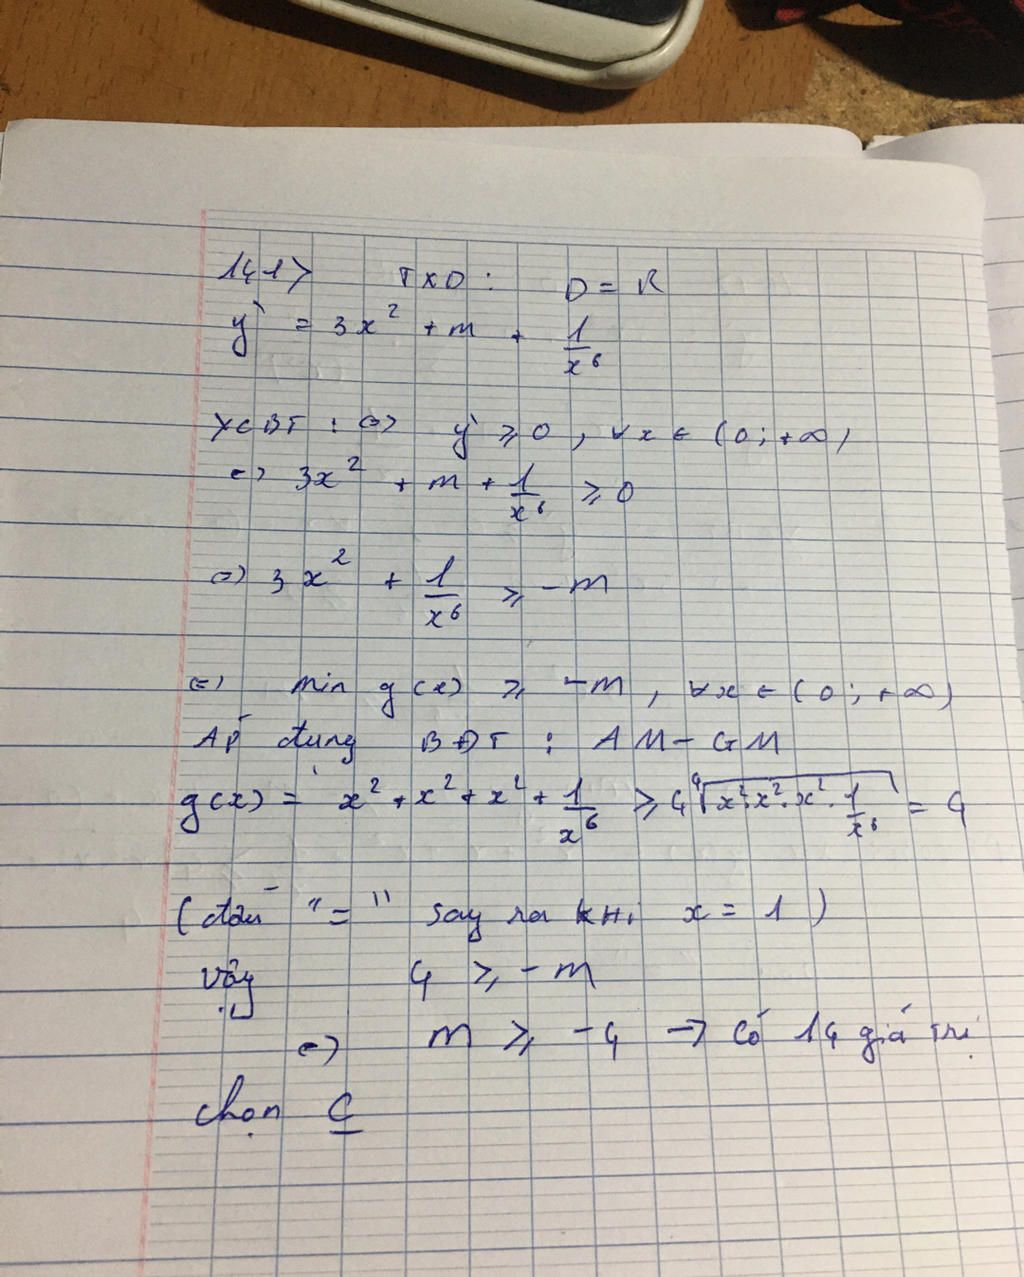 141> TXD : D = R
y' = 3x² + m + 1/x⁶
YCBT : <=> y' ≥ 0 , ∀x ∈ (0 ; +∞)
<=> 3x² + m + 1/x⁶ ≥ 0
<=> 3x² + 1/x⁶ ≥ -m
<=> min g(x) ≥ -m , ∀x ∈ (0 ; +∞)
Áp dụng BĐT : AM-GM
g(x) = x² + x² + x² + 1/x⁶ ≥ 4 ⁴√(x².x².x².1/x⁶) = 4
(dấu "=" say ra khi x = 1 )
Vậy 4 ≥ -m
<=> m ≥ -4 → Có 14 giá trị
chọn C